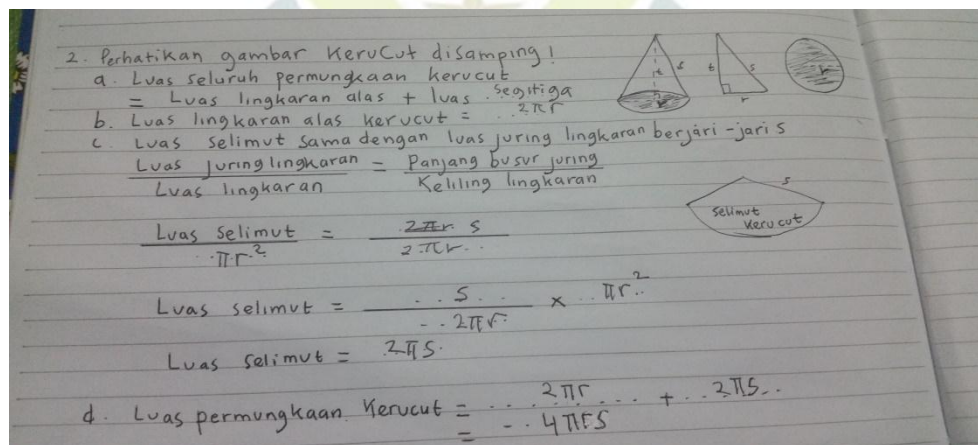 2. Perhatikan gambar KeruCut disamping!
a. Luas seluruh permungkaan kerucut
= Luas lingkaran alas + luas segitiga
b. Luas lingkaran alas kerucut = ..2πr
c. Luas selimut sama dengan luas juring lingkaran berjari-jari s
Luas juring lingkaran / Luas lingkaran = Panjang busur juring / Keliling lingkaran
Luas selimut / ..πr² = 2πr s / 2πr..
Luas selimut = ..s.. / ..2πr. × ..πr²..
Luas selimut = 2πs.
d. Luas permungkaan kerucut = ..2πr... + ..2πs..
= ..4πrs
t s
r
t s
r
r
s
selimut
kerucut